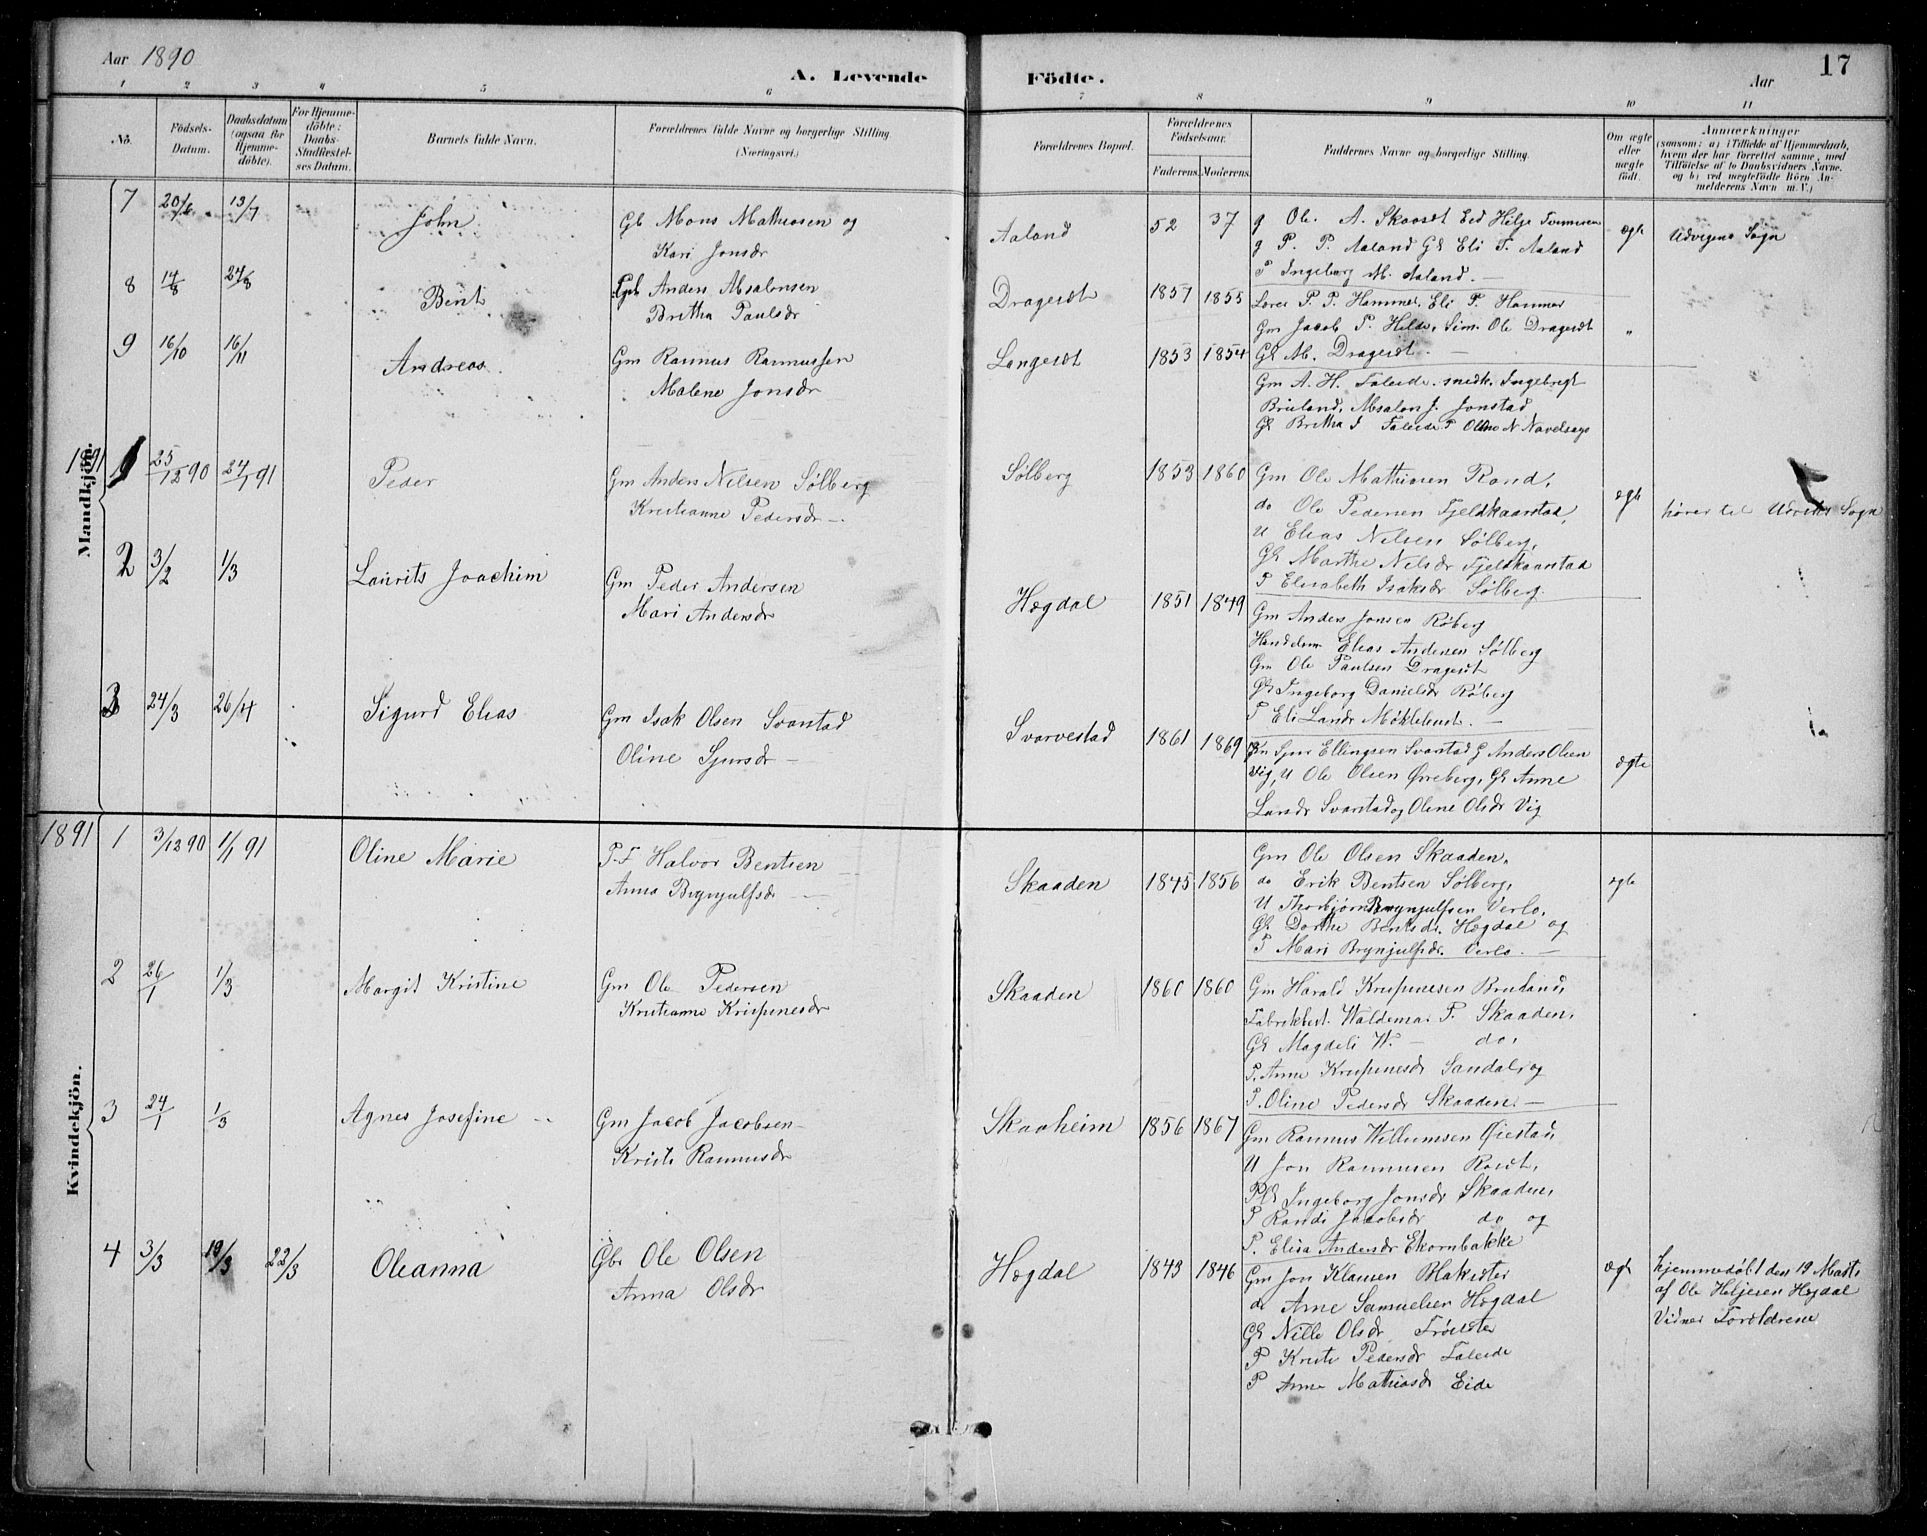 Aar 1890
A. Levende Födte.
Aar
17
1 2 3 4 5 6 7 8 9 10 11
No.
Födsels-Datum.
Daabsdatum (ogsaa for Hjemmedöbte).
For Hjemmedöbte: Daabs-Stadfæstelses Datum.
Barnets fulde Navn.
Forældrenes fulde Navne og borgerlige Stilling (Næringsvei.)
Forældrenes Bopæl.
Forældrenes Födselsaar.
Faderens. Moderens.
Faddernes Navne og borgerlige Stilling.
Om ægte eller uægte födt.
Anmærkninger
(saasom: a) i Tilfælde af Hjemmedaab, hvem der har forrettet samme, med Tilföielse af to Daabsvidners Navne. og b) ved uægtefödte Börn Anmelderens Navn m. V.)
Mandkjön.
7 20/6 13/7 John
Gb Mons Mathiasen og
Kari Jonsdr
Aaland 52 37
g Ole A. Skaaset Eed Helje Tommesen
g P. P. Aaland GK Eli T. Aaland
P Ingeborg M. Aaland. —
ægte Udvigens Sogn
8 14/8 24/8 Bent
Gb Anders Absalonsen
Britha Paulsdr
Drageset 1857 1855
Lærer P. P. Hammer, Eli P. Hammer
Gm Jacob P. Helde, Sim. Ole Drageset
GK M. Drageset. —
"
9 16/10 16/11 Andreas
Gm Rasmus Rasmussen
Malene Jonsdr
Langeset 1853 1854
Gm A. H. Faleide. snedk. Ingebrigt
Bruland, Absalon J. Jonstad
GK Britha J Faleide P Oline N Navelsager
1891 1 25/12 90 24/1 91 Peder
Gm Anders Nilsen Sølberg
Kristianne Pedersdr —
Sølberg 1853 1860
Gm Ole Mathiasen Rand,
do Ole Pedersen Fjeldkaarstad,
U Elias Nilsen Sølberg,
GK Marthe Nilsdr Fjeldkaarstad
P Elisabeth Isaksdr Sølberg.
ægte hører til Udviks Sogn
2 3/2 1/3 Laurits Joachim
Gm Peder Andersen
Mari Andersdr
Hægdal 1851 1849
Gm Anders Jonsen Røberg
Handelsm Elias Andersen Sølberg
Gm Ole Paulsen Drageset
GK Ingeborg Danielsdr Røberg
P Eli Larsdr Møklebust. —
3 24/3 26/4 Sigurd Elias
Gm Isak Olsen Svarstad
Oline Sjursdr —
Svarvestad 1861 1869
Gm Sjur Ellingsen Svarstad G Anders Olsen
Vig, U Ole Olsen Øvreberg, GK Anne
Larsdr Svarstad og Oline Olsdr Vig
ægte
Kvindekjön.
1891 1 3/12 90 1/1 91 Oline Marie
P.F Halvor Bentsen
Anna Brynjulfsdr —
Skaaden 1845 1856
Gm Ole Olsen Skaaden,
do Erik Bentsen Sølberg,
U Thorbjørn Brynjulfsen Verlo,
GK Dorthe Bentsdr. Hægdal og
P Mari Brynjulfsdr. Verlo. —
ægte
2 26/1 1/3 Margit Kristine
Gm Ole Pedersen
Kristianne Krispinesdr
Skaaden 1860 1860
Gm Harald Krispinesen Bruland,
Fabrikbest. Waldemar P. Skaaden,
GK Magdeli W. — do,
P. Anne Krispinesdr Sandal, og
P. Oline Pedersdr Skaaden. —
3 24/1 1/3 Agnes Josefine
Gm Jacob Jacobsen
Kristi Rasmusdr
Skaaheim 1856 1867
Gm Rasmus Willumsen Øiestad,
U Jon Rasmusen Roset,
PlK Ingeborg Jonsdr Skaaden,
P Randi Jacobsdr do og
P. Elisa Andersdr Ekornbakke
4 3/3 19/3 22/3 Oleanna
Gbr Ole Olsen
Anna Olsdr
Hægdal 1843 1846
Gm Jon Klausen Blaksæter
do Arne Samuelsen Hægdal
GK Nille Olsdr Frøiseter
P Kristi Pedersdr Faleide
P Anne Mathiasdr Eide
ægt
hjemmedøbt den 19 Marts
af Ole Heljesen Hægdal
Vidner Forældrene